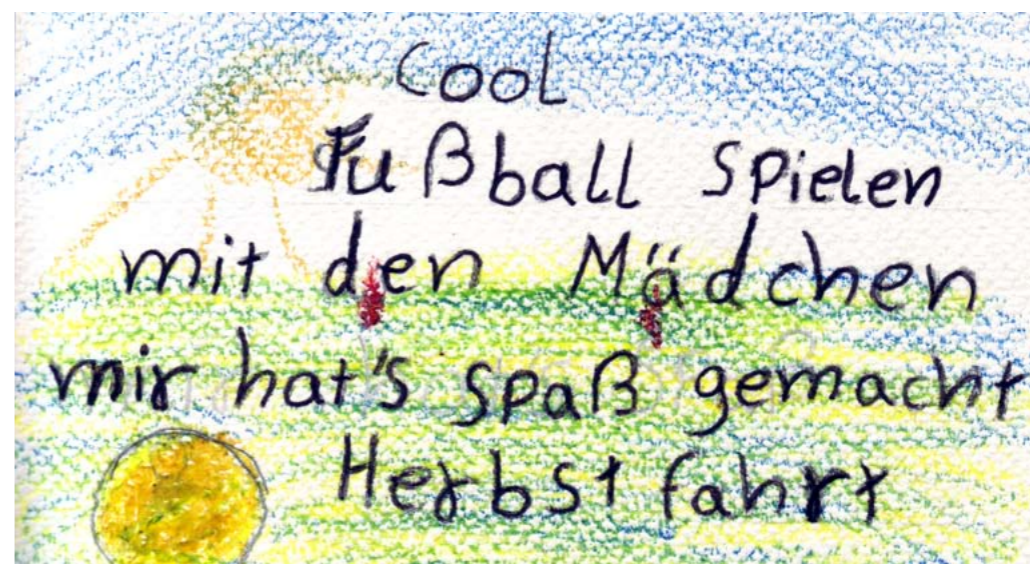 Cool
Fußball spielen
mit den Mädchen
mir hat's spaß gemacht
Herbstfahrt